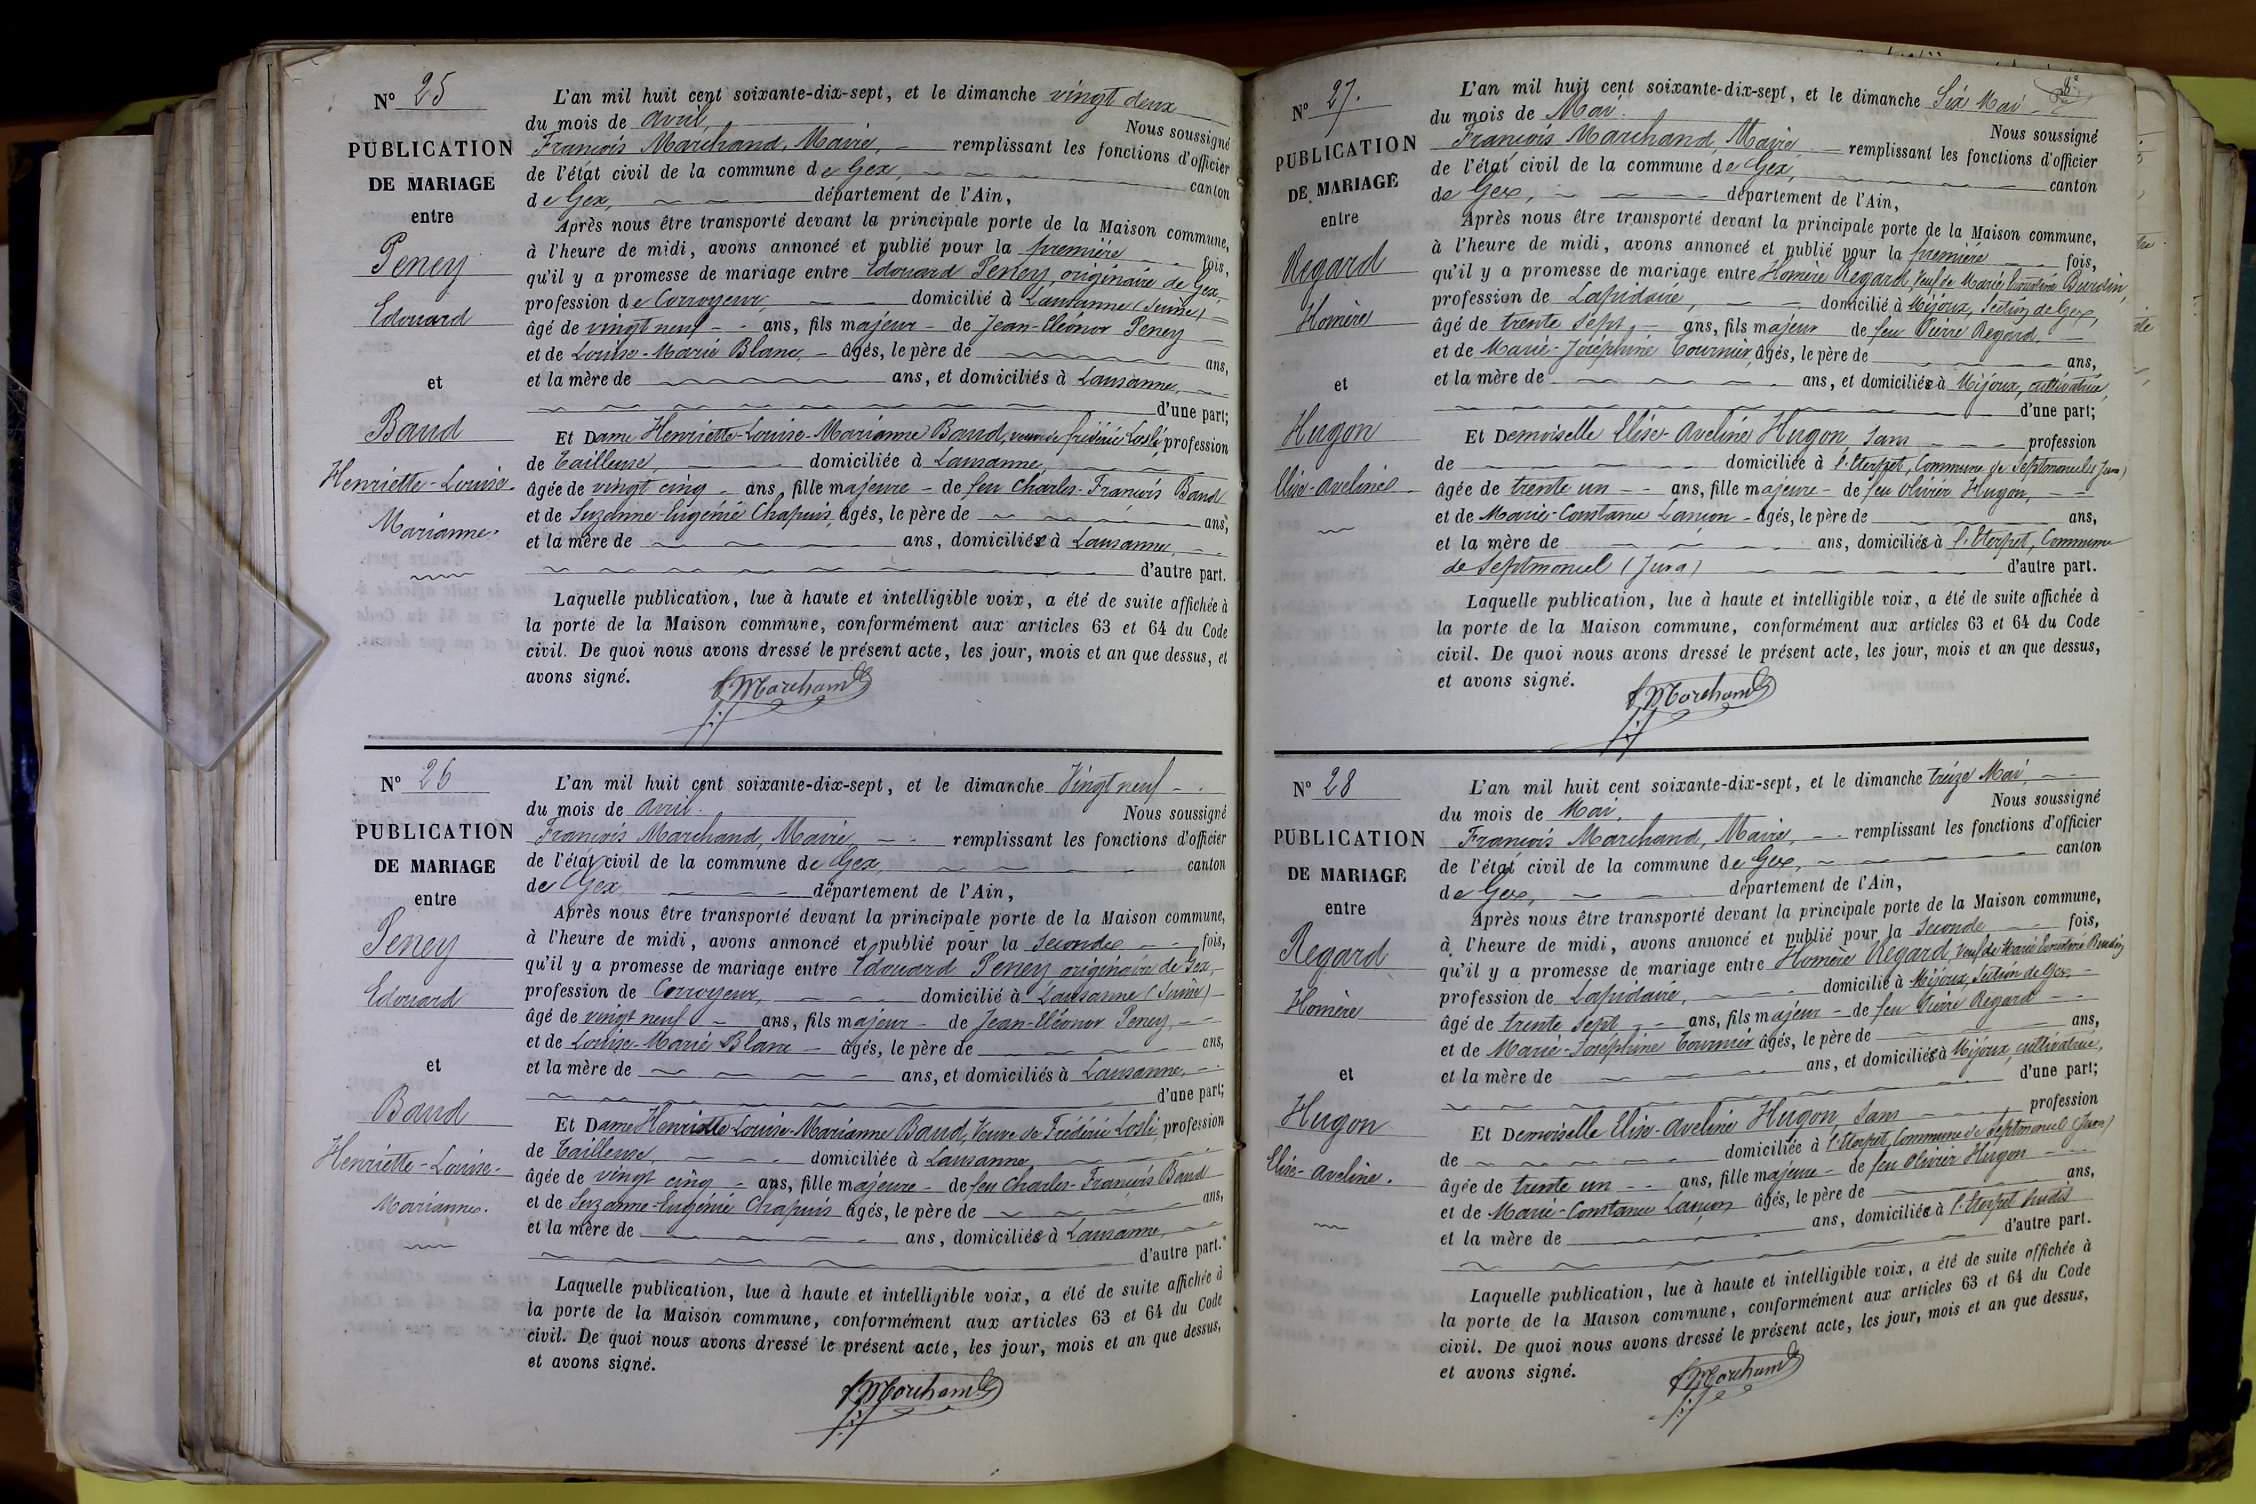 N° 25
PUBLICATION
DE MARIAGE
entre
Peney
Edouard
et
Baud
Henriette-Louise-
Marianne.
L'an mil huit cent soixante-dix-sept, et le dimanche vingt deux
du mois de avril, Nous soussigné
François Marchand, Maire, remplissant les fonctions d'officier
de l'état civil de la commune de Gex, canton
de Gex, département de l'Ain,
Après nous être transporté devant la principale porte de la Maison commune,
à l'heure de midi, avons annoncé et publié pour la première fois,
qu'il y a promesse de mariage entre Edouard Peney, originaire de Gex,
profession de Corroyeur, domicilié à Lausanne (Suisse)
âgé de vingt neuf ans, fils majeur de Jean-Eléonor Peney
et de Louise-Marie Blanc, âgés, le père de ans,
et la mère de ans, et domiciliés à Lausanne,
d'une part;
Et Dame Henriette-Louise-Marianne Baud, veuve de Frédéric Loslé, profession
de Tailleuse, domiciliée à Lausanne,
âgée de vingt cinq ans, fille majeure de feu Charles-François Baud
et de Suzanne-Eugénie Chapuis, âgés, le père de ans,
et la mère de ans, domiciliés à Lausanne,
d'autre part.
Laquelle publication, lue à haute et intelligible voix, a été de suite affichée à
la porte de la Maison commune, conformément aux articles 63 et 64 du Code
civil. De quoi nous avons dressé le présent acte, les jour, mois et an que dessus, et
avons signé.
f Marchand
N° 26
PUBLICATION
DE MARIAGE
entre
Peney
Edouard
et
Baud
Henriette-Louise-
Marianne.
L'an mil huit cent soixante-dix-sept, et le dimanche Vingt neuf
du mois de avril. Nous soussigné
François Marchand, Maire, remplissant les fonctions d'officier
de l'état civil de la commune de Gex, canton
de Gex département de l'Ain,
Après nous être transporté devant la principale porte de la Maison commune,
à l'heure de midi, avons annoncé et publié pour la seconde fois,
qu'il y a promesse de mariage entre Edouard Peney originaire de Gex,
profession de Corroyeur, domicilié à Lausanne (Suisse)
âgé de vingt neuf ans, fils majeur de Jean-Eléonor Peney,
et de Louise-Marie Blanc âgés, le père de ans,
et la mère de ans, et domiciliés à Lausanne,
d'une part;
Et Dame Henriette-Louise-Marianne Baud, Veuve de Frédéric Loslé, profession
de Tailleuse, domiciliée à Lausanne
âgée de vingt cinq ans, fille majeure de feu Charles-François Baud
et de Suzanne-Eugénie Chapuis âgés, le père de ans,
et la mère de ans, domiciliés à Lausanne,
d'autre part.
Laquelle publication, lue à haute et intelligible voix, a été de suite affichée à
la porte de la Maison commune, conformément aux articles 63 et 64 du Code
civil. De quoi nous avons dressé le présent acte, les jour, mois et an que dessus,
et avons signé.
f Marchand
8e
N° 27.
PUBLICATION
DE MARIAGE
entre
Regard
Homère
et
Hugon
Elise-Aveline
L'an mil huit cent soixante-dix-sept, et le dimanche Six Mai
du mois de Mai. Nous soussigné
François Marchand, Maire remplissant les fonctions d'officier
de l'état civil de la commune de Gex, canton
de Gex, département de l'Ain,
Après nous être transporté devant la principale porte de la Maison commune,
à l'heure de midi, avons annoncé et publié pour la première fois,
qu'il y a promesse de mariage entre Homère Regard, Veuf de Marie
profession de Lapidaire, domicilié à Mijoux, Section de Gex,
âgé de trente sept, ans, fils majeur de feu Pierre Regard,
et de Marie-Joséphine Tournier, âgés, le père de ans,
et la mère de ans, et domiciliés à Mijoux, cultivatrice,
d'une part;
Et Demoiselle Elise-Aveline Hugon, sans profession
de domiciliée à l'Eterpet, Commune de Septmoncel (Jura)
âgée de trente un ans, fille majeure de feu Olivier Hugon,
et de Marie-Constance Lançon âgés, le père de ans,
et la mère de ans, domiciliés à l'Eterpet, Commune
de Septmoncel (Jura) d'autre part.
Laquelle publication, lue à haute et intelligible voix, a été de suite affichée à
la porte de la Maison commune, conformément aux articles 63 et 64 du Code
civil. De quoi nous avons dressé le présent acte, les jour, mois et an que dessus,
et avons signé.
f Marchand
N° 28
PUBLICATION
DE MARIAGE
entre
Regard
Homère
et
Hugon
Elise-Aveline.
L'an mil huit cent soixante-dix-sept, et le dimanche treize Mai,
du mois de Mai, Nous soussigné
François Marchand, Maire, remplissant les fonctions d'officier
de l'état civil de la commune de Gex, canton
de Gex, département de l'Ain,
Après nous être transporté devant la principale porte de la Maison commune,
à l'heure de midi, avons annoncé et publié pour la Seconde fois,
qu'il y a promesse de mariage entre Homère Regard, Veuf de Marie
profession de Lapidaire, domicilié à Mijoux, Section de Gex,
âgé de trente sept ans, fils majeur de feu Pierre Regard
et de Marie-Joséphine Tournier âgés, le père de ans,
et la mère de ans, et domiciliés à Mijoux, cultivatrice,
d'une part;
Et Demoiselle Elise-Aveline Hugon, sans profession
de domiciliée à l'Eterpet, Commune de Septmoncel (Jura)
âgée de trente un ans, fille majeure de feu Olivier Hugon
et de Marie-Constance Lançon âgés, le père de ans,
et la mère de ans, domiciliés à l'Eterpet susdit
d'autre part.
Laquelle publication, lue à haute et intelligible voix, a été de suite affichée à
la porte de la Maison commune, conformément aux articles 63 et 64 du Code
civil. De quoi nous avons dressé le présent acte, les jour, mois et an que dessus,
et avons signé.
f Marchand